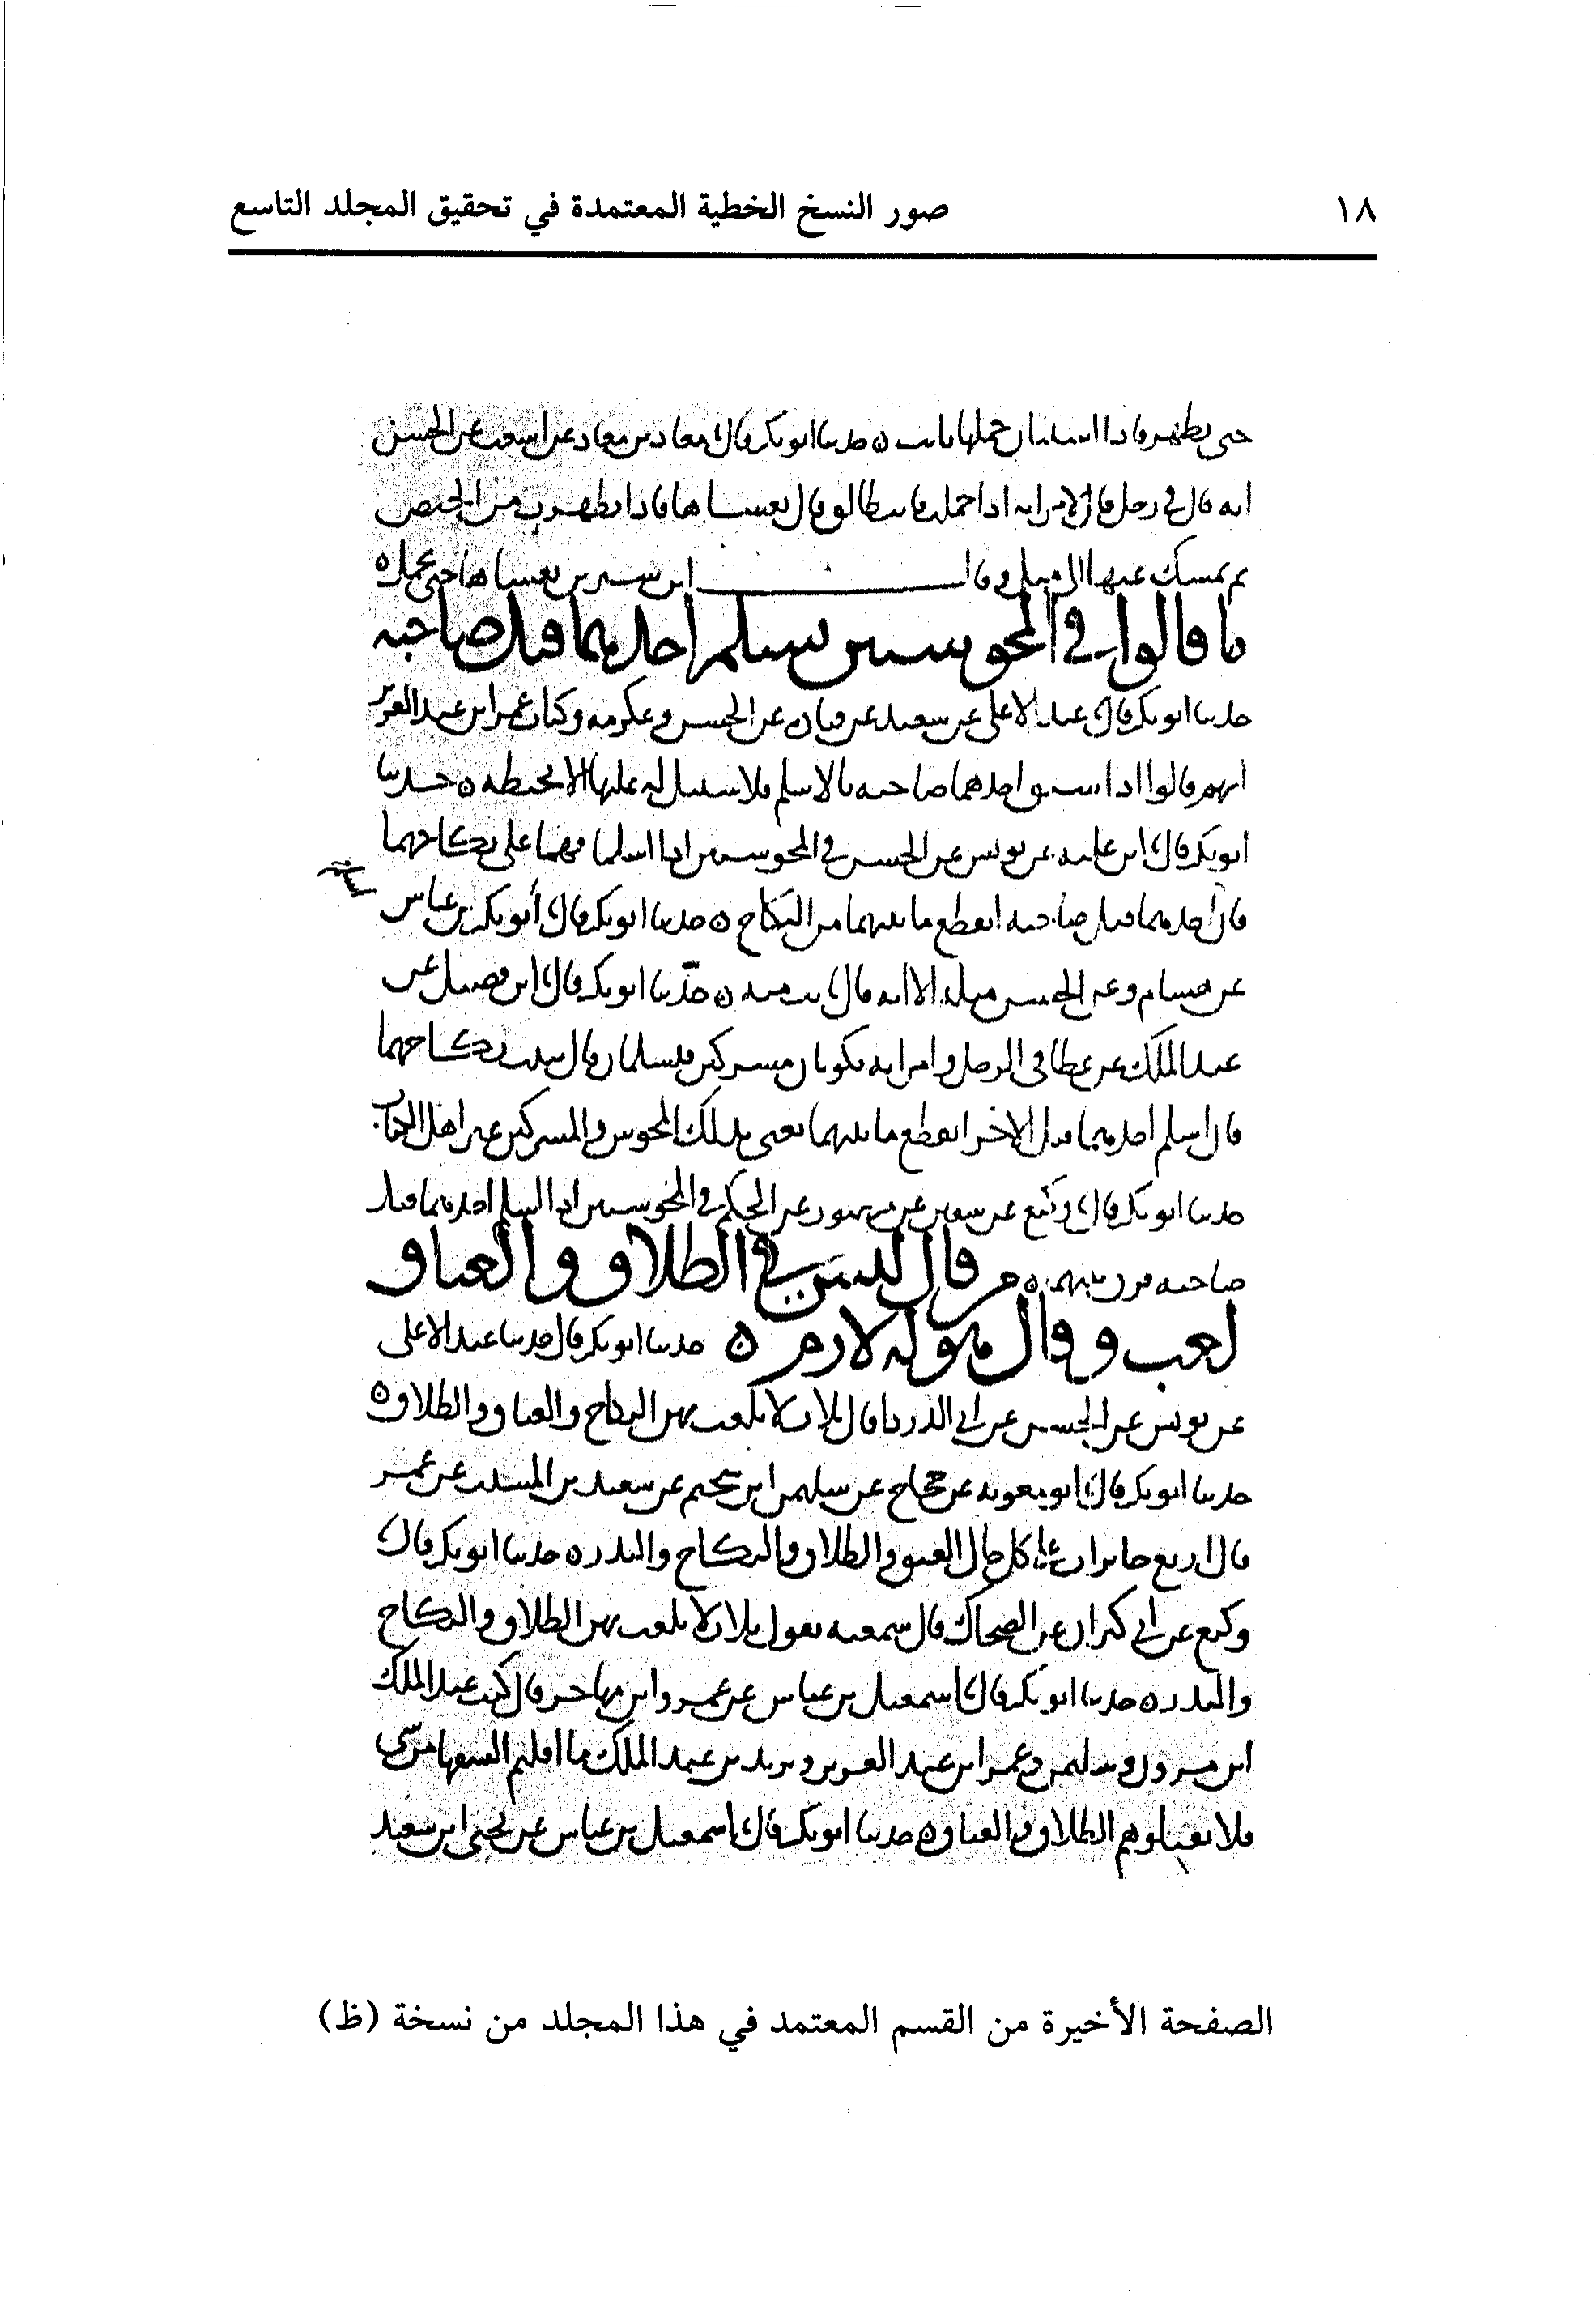 ١٨ صور النسخ الخطية المعتمدة في تحقيق المجلد التاسع
حتى يطهر فاذا استبان حملها بانت ه حدثنا ابو بكر قال نا معاد بن معاد عن اشعث عن الحسن
انه قال في رجل قال لامراته اذا حملت فانت طالق قال يغشاها فاذا تطهرت من الحيض
ثم يمسك عنها الى مثل وقال ابن سيرين يغشاها حتى تحمل ه
ما قالوا في المجوسيين يسلم احدهما قبل صاحبه
حدثنا ابو بكر قال نا عبد الاعلى عن سعيد عن قتادة عن الحسن وعكرمه وكتاب عمر ابن عبد العزيز
انهم قالوا اذا سبق احدهما صاحبه بالاسلم فلا سبيل له عليها الا بخطبه ه حدثنا
ابو بكر قال نا ابن عليه عن يونس عن الحسن في المجوسيين اذا اسلما فهما على نكاحهما
فان احدهما قبل صاحبه انقطع ما بينهما من النكاح ه حدثنا ابو بكر قال نا أبو بكر بن عياش
عن هشام وعن الحسن مثله الا انه قال بانت منه ه حدثنا ابو بكر قال نا ابن فضيل عن
عبد الملك عن عطا في الرجل وامراته يكونان مشركين فيسلمان قال يثبت نكاحهما
فان اسلم احدهما قبل الاخر انقطع ما بينهما يعنى بذلك المجوس والمشركين غير اهل الكتاب
حدثنا ابو بكر قال نا وكيع عن سفين عن منصور عن الحكم في المجوسيين اذا اسلم احدهما قبل
صاحبه فرق بينهما ه من قال ليس في الطلاق والعتاق
لعب وقال هو له لازم ه حدثنا ابو بكر قال حدثنا عبد الاعلى
عن يونس عن الحسن عن ابي الدردا قال ثلاث لا يلعب بهن النكاح والعتاق والطلاق ه
حدثنا ابو بكر قال نا أبو معويه عن حجاج عن سليمن ابن سحيم عن سعيد بن المسيب عن عمر
قال اربع جايزات على كل حال العتق والطلاق والنكاح والنذر ه حدثنا ابو بكر قال نا
وكيع عن ابي كبران عن الضحاك قال سمعته يقول ثلاث لا يلعب بهن الطلاق والنكاح
والنذر ه حدثنا ابو بكر قال نا اسمعيل بن عياش عن عمرو ابن مهاجر قال كتب عبد الملك
ابن مرون وسليمن وعمر ابن عبد العزيز ويزيد بن عبد الملك ما اقلتم السفها من شي
فلا تقيلوهم الطلاق والعتاق ه حدثنا ابو بكر قال نا اسمعيل بن عياش عن يحيى ابن سعيد
الصفحة الأخيرة من القسم المعتمد في هذا المجلد من نسخة (ظ)